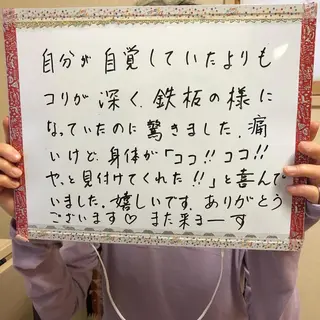 自分が自覚していたよりも
コリが深く、鉄板の様に
なっていたのに驚きました。痛
いけど、身体が「ココ!!ココ!!
やっと見付けてくれた!!」と喜んで
いました。嬉しいです。ありがとう
ございます♡ また来まーす